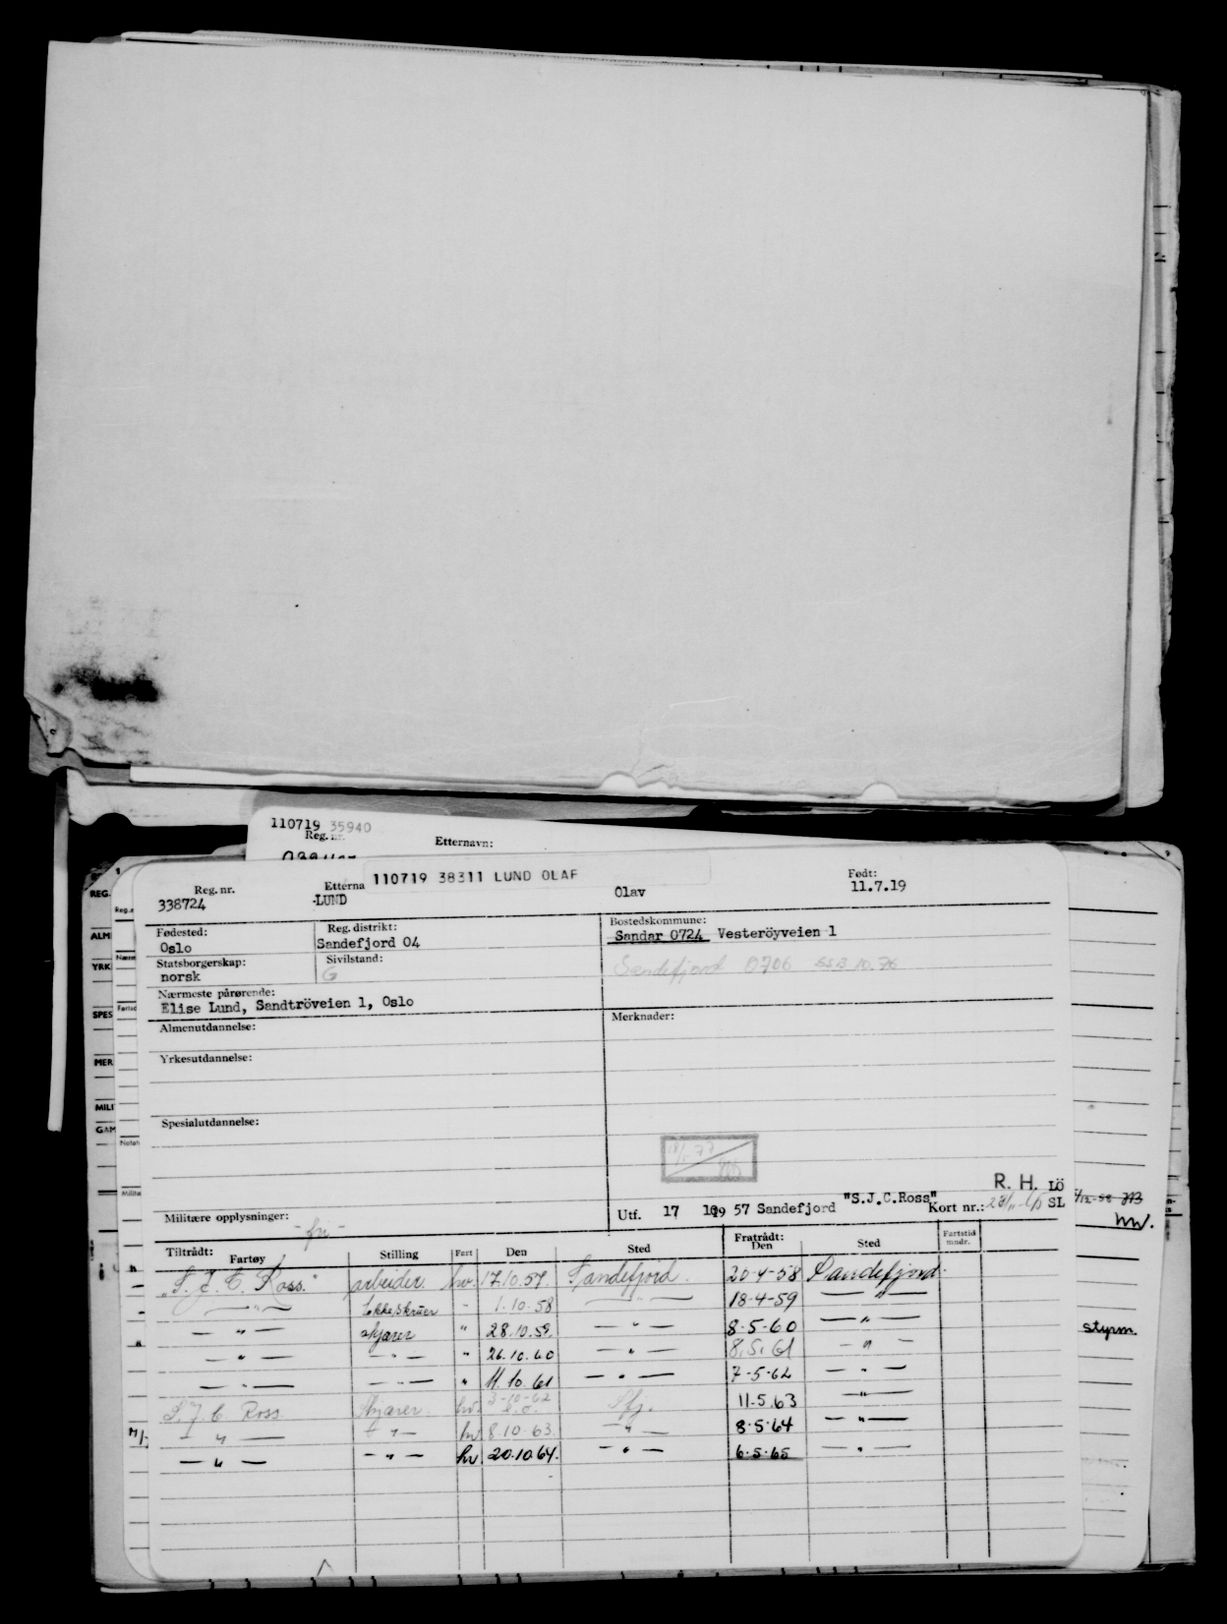 110719 35940
Reg. nr. Etternavn:
110719 38311 LUND OLAF
Reg. nr. Etterna Født:
338724 LUND Olav 11.7.19
Fødested: Reg. distrikt: Bostedskommune:
Oslo Sandefjord 04 Sandar 0724 Vesteröyveien 1
Statsborgerskap: Sivilstand:
norsk G Sandefjord 0706 SSB 10.76
Nærmeste pårørende:
Elise Lund, Sandtröveien 1, Oslo
Almenutdannelse: Merknader:
Yrkesutdannelse:
Spesialutdannelse:
R. H. LÖ
Militære opplysninger: Utf. 17 10 19 57 Sandefjord "S.J.C.Ross" Kort nr.: SL
- fri -
Tiltrådt: Fartøy Stilling Fart Den Sted Fratrådt: Den Sted Fartstid mndr.
"S. J. C. Ross." arbeider hv. 17.10.57. Sandefjord. 20-4-58 Sandefjord.
— " — - 1.10.58 — " — 18-4-59 — " —
— " — skjærer " 28.10.59 — " — 8.5.60 — " —
— " — — " — " 26.10.60 — " — 8.5.61 — " —
— " — — " — " 11.10.61 — " — 7-5-62 — " —
S. J. C. Ross. Skjærer. hv. 3-10-62 Sfj. 11.5.63 — " —
— " — — " — hv 8.10.63. — " — 8.5.64 — " —
— " — — " — hv 20.10.64. — " — 6.5.65 — " —
REG.
ALM
YRK
SPES
MER
MILI
GAM
styrm.